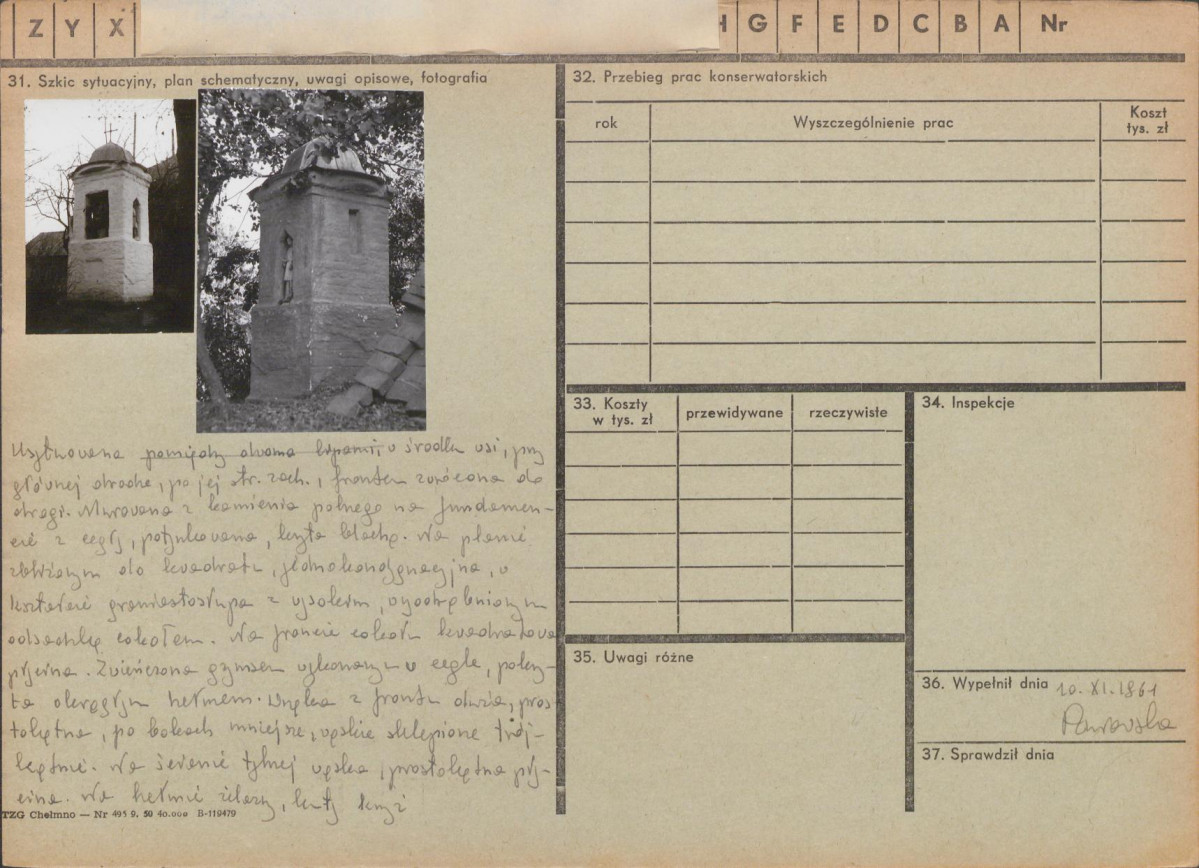 Z Y X H G F E D C B A Nr
31. Szkic sytuacyjny, plan schematyczny, uwagi opisowe, fotografia
Usytuowana pomiędzy dwoma lipami, w środku wsi, przy
głównej drodze, po jej str. zach., frontem zwrócona do
drogi. Murowana z kamienia polnego na fundamen-
cie z cegły, potynkowana, kryta blachą. Na planie
zbliżonym do kwadratu, jednokondygnacyjna, w
kształcie graniastosłupa z wysokim, wyodrębnionym
odsadzką cokołem. Na froncie cokołu kwadratowa
płycina. Zwieńczona gzymsem wykonanym w cegle, pokry-
ta okrągłym hełmem. Wnęka z frontu duża, pros-
tokątna, po bokach mniejsze, wąskie sklepione trój-
kątnie. Na ścianie tylnej wąska, prostokątna pły-
cina. Na hełmie żelazny, kuty krzyż
TZG Chełmno — Nr 495 9. 50 40.000 B-119479
32. Przebieg prac konserwatorskich
rok Wyszczególnienie prac Koszt tys. zł
33. Koszty w tys. zł przewidywane rzeczywiste
34. Inspekcje
35. Uwagi różne
36. Wypełnił dnia 10. XI. 1961
37. Sprawdził dnia